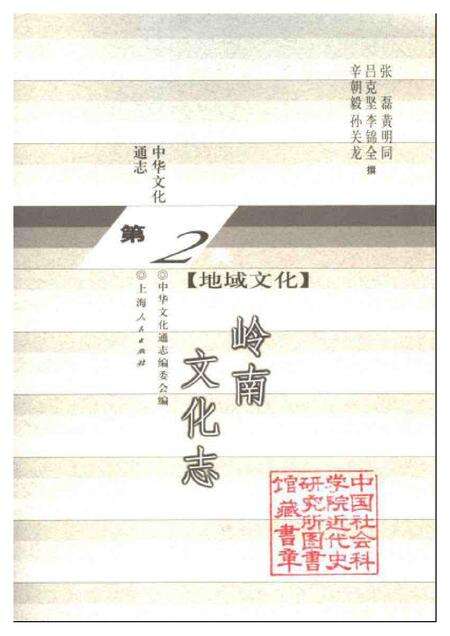 张 磊 黄明同
吕克坚 李锦全 撰
辛朝毅 孙关龙
中华文化
通志
第2典
【地域文化】
◎中华文化通志编委会编
◎上海人民出版社
岭南
文化志
中国社会科
学院近代史
研究所图书
馆藏书章